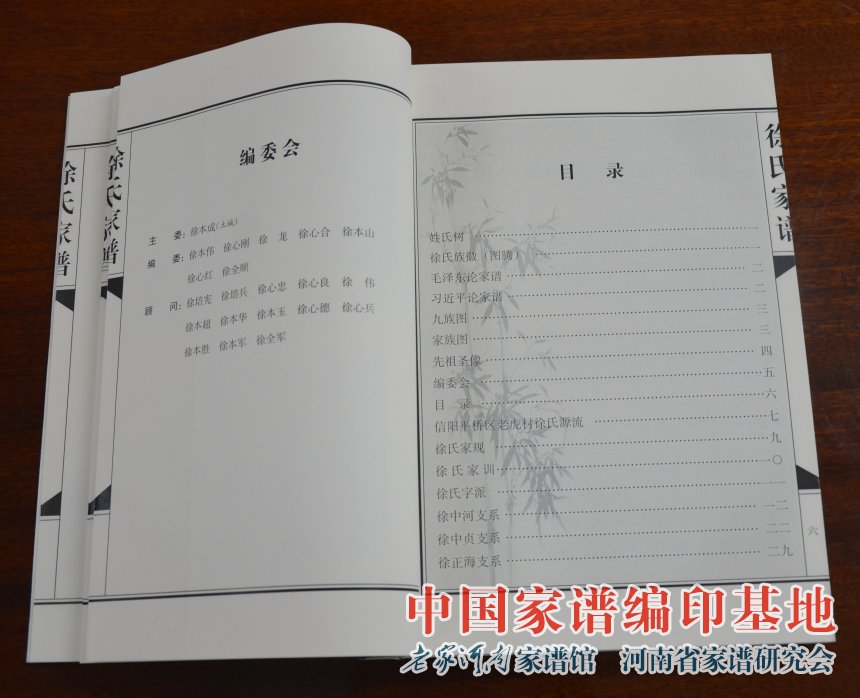 徐氏家谱
徐氏家谱
编委会
主 委：徐本成(土城)
编 委：徐本伟 徐心刚 徐 龙 徐心合 徐本山
徐心红 徐全顺
顾 问：徐培宪 徐培兵 徐心忠 徐心良 徐 伟
徐本超 徐本华 徐本玉 徐心德 徐心兵
徐本胜 徐本军 徐全军
徐氏家谱
目 录
姓氏树
徐氏族徽（图腾） 一
毛泽东论家谱 二
习近平论家谱 二
九族图 三
家族图 三
先祖圣像 四
编委会 五
目 录 六
信阳平桥区老虎村徐氏源流 七
徐氏家规 九
徐氏家训 一〇
徐氏字派 一一
徐中河支系 一二
徐中贞支系 二二
徐正海支系 二九
六
中国家谱编印基地
老家河南家谱馆 河南省家谱研究会